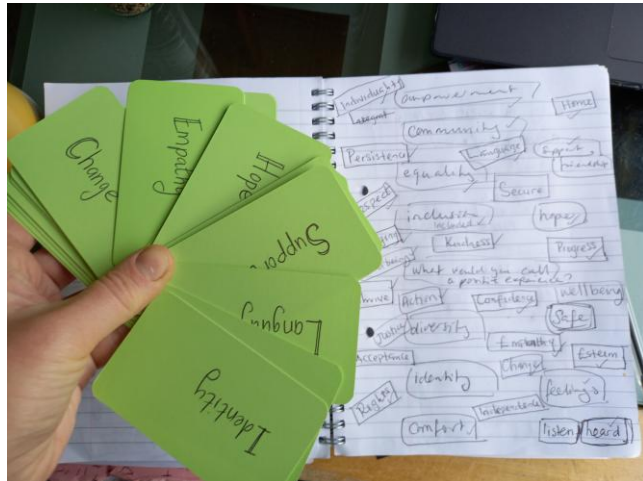 Change
Empathy
Hope
Support
Languag
Identity
Individuality
empowerment
Home
Community
Persistence
Language
Support
equality
Secure
inclusion
included
hope
Kindness
Progress
What would you call
a positive experience?
Action
Confidence
wellbeing
Safe
diversity
Empathy
Acceptance
Change
Esteem
identity
feelings
Rights
Independence
Comfort
listen
heard